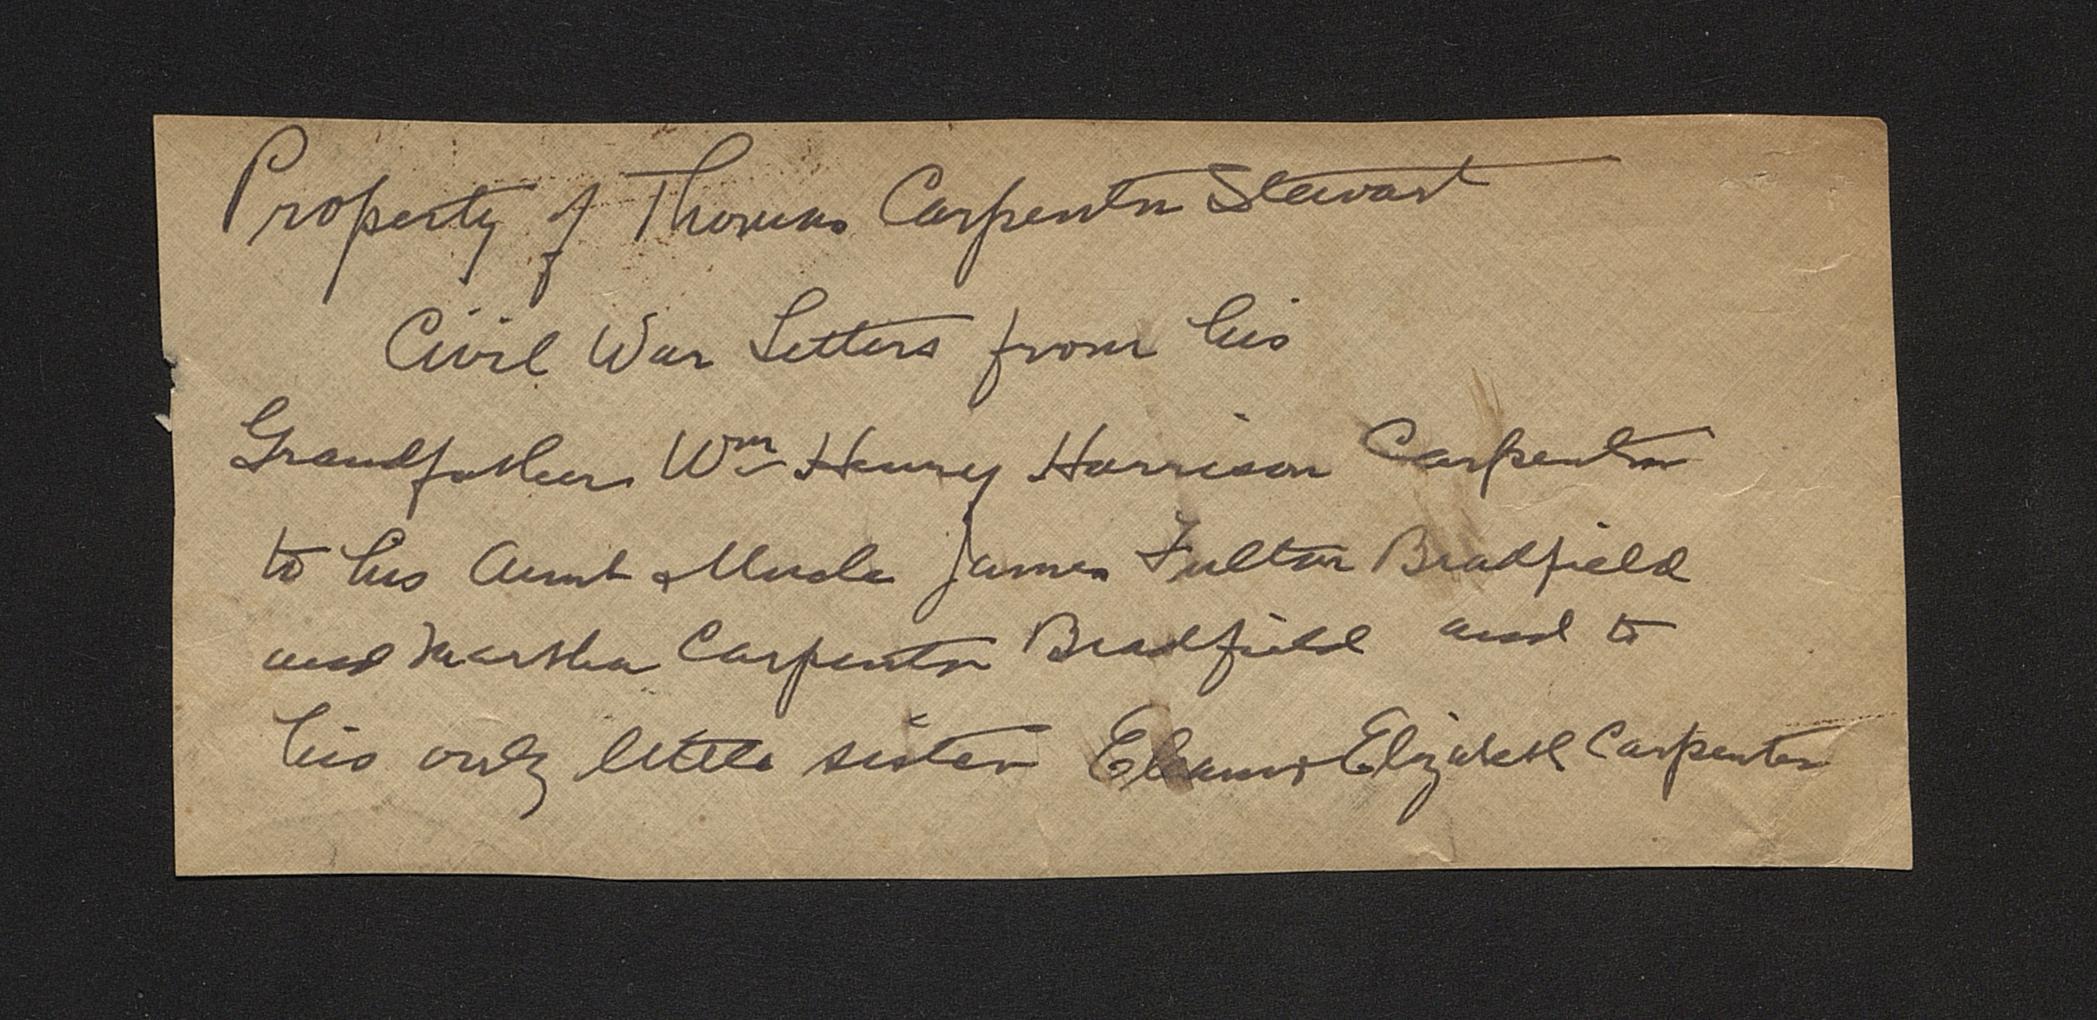 Property of Thomas Carpenter Stewart
Civil War Letters from his
Grandfather Wm Henry Harrison Carpenter
to his Aunt & Uncle James Fulton Bradfield
and Martha Carpenter Bradfield and to
his only little sister Eleanor Elizabeth Carpenter